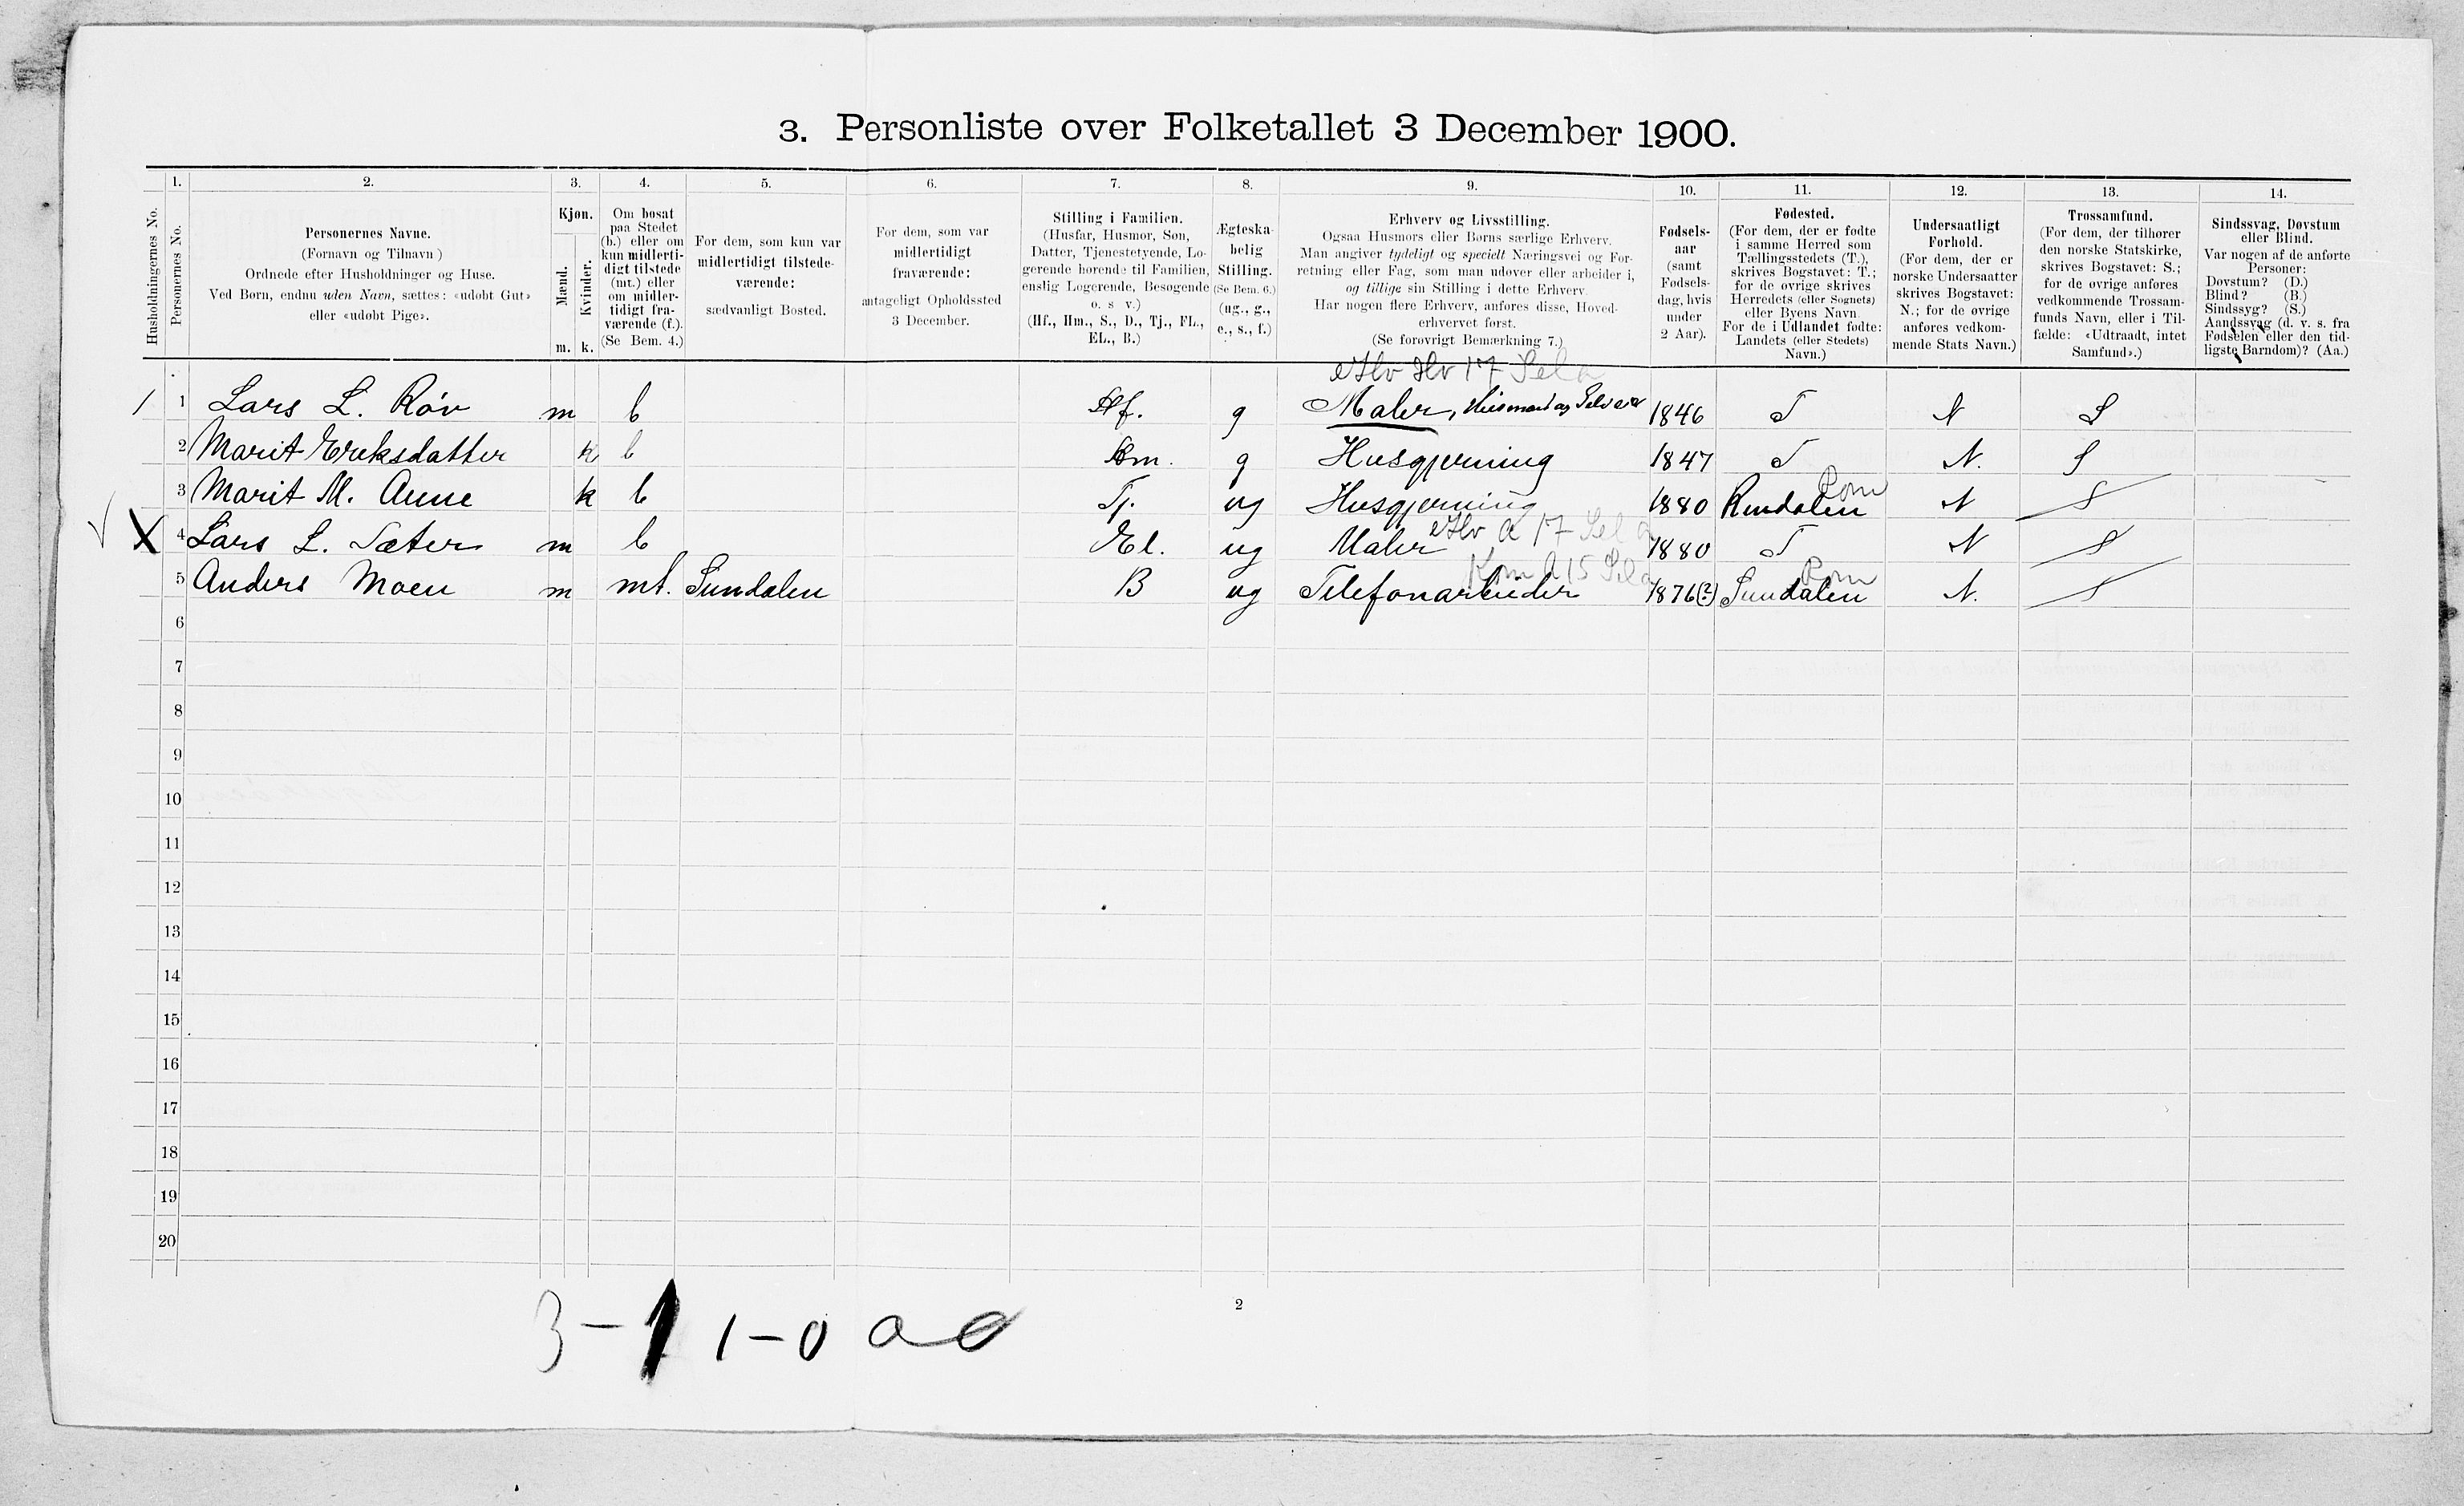 3. Personliste over Folketallet 3 December 1900.
1. 2. 3. 4. 5. 6. 7. 8. 9. 10. 11. 12. 13. 14.
Husholdningernes No.
Personernes No.
Personernes Navne.
(Fornavn og Tilnavn)
Ordnede efter Husholdninger og Huse.
Ved Børn, endnu uden Navn, sættes: «udøbt Gut»
eller «udøbt Pige».
Kjøn.
Mænd.
Kvinder.
m. k.
Om bosat
paa Stedet
(b.) eller om
kun midlerti-
digt tilstede
(mt.) eller
om midler-
tidigt fra-
værende (f.).
(Se Bem. 4.)
For dem, som kun var
midlertidigt tilstede-
værende:
sædvanligt Bosted.
For dem, som var
midlertidigt
fraværende:
antageligt Opholdssted
3 December.
Stilling i Familien.
(Husfar, Husmor, Søn,
Datter, Tjenestetyende, Lo-
gerende hørende til Familien,
enslig Logerende, Besøgende
o. s v.)
(Hf., Hm., S., D., Tj., FL.,
EL., B.)
Ægteska-
belig
Stilling.
(Se Bem. 6.)
(ug., g.,
e., s., f.)
Erhverv og Livsstilling.
Ogsaa Husmors eller Børns særlige Erhverv.
Man angiver tydeligt og specielt Næringsvei og For-
retning eller Fag, som man udøver eller arbeider i,
og tillige sin Stilling i dette Erhverv.
Har nogen flere Erhverv, anføres disse, Hoved-
erhvervet først.
(Se forøvrigt Bemærkning 7.)
Fødsels-
aar
(samt
Fødsels-
dag, hvis
under
2 Aar).
Fødested.
(For dem, der er fødte
i samme Herred som
Tællingsstedets (T.),
skrives Bogstavet: T.;
for de øvrige skrives
Herredets (eller Sognets)
eller Byens Navn.
For de i Udlandet fødte:
Landets (eller Stedets)
Navn.)
Undersaatligt
Forhold.
(For dem, der er
norske Undersaatter
skrives Bogstavet:
N.; for de øvrige
anføres vedkom-
mende Stats Navn.)
Trossamfund.
(For dem, der tilhører
den norske Statskirke,
skrives Bogstavet: S.;
for de øvrige anføres
vedkommende Trossam-
funds Navn, eller i Til-
fælde: «Udtraadt, intet
Samfund».)
Sindssvag, Døvstum
eller Blind.
Var nogen af de anførte
Personer:
Døvstum? (D.)
Blind? (B.)
Sindssyg? (S.)
Aandssvag (d. v. s. fra
Fødselen eller den tid-
ligste Barndom)? (Aa.)
17 Sel a
1 1 Lars L. Røv m b Hf. g Maler, Husmand og Selveier 1846 T N S
2 Marit Ereksdatter k b Hm. g Husgjerning 1847 T N. S
Rom
3 Marit M. Aune k b Tj. ug Husgjerning 1880 Rindalen N S
a 17 Sel a
X 4 Lars L. Sæter m b El. ug Maler 1880 T N S
Rom a 15 Sel a Rom
5 Anders Moen m mt. Sundalen B ug Telefonarbeider 1876(?) Sundalen N. S
6
7
8
9
10
11
12
13
14
15
16
17
18
19
20
2
3-1 1-0 a